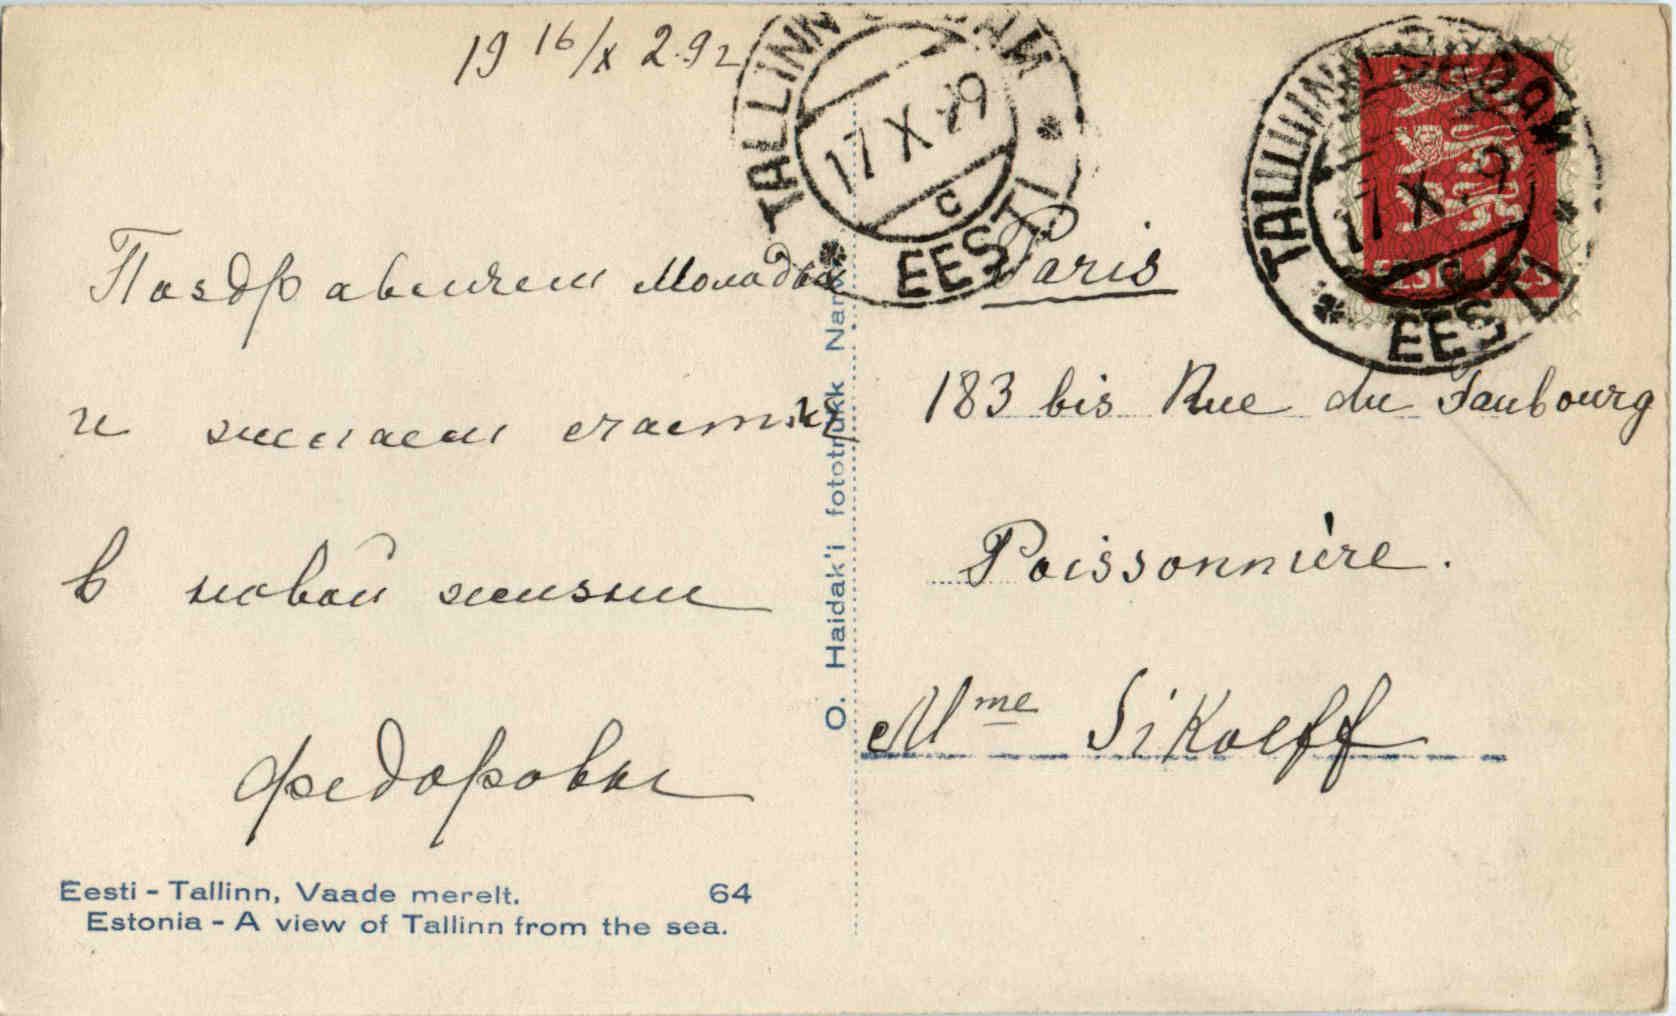 19 16/X 29
TALLINN
17 X 29
C
EESTI
TALLINN
17 X 9
C
EESTI
EESTI
Поздравляем
и желаем счастия
в новой жизни
Федоровы
Paris
183 bis Rue du Faubourg
Poissonnière.
Mme Sikoeff
O. Haidak'i fototrükk Narva
Eesti - Tallinn, Vaade merelt. 64
Estonia - A view of Tallinn from the sea.